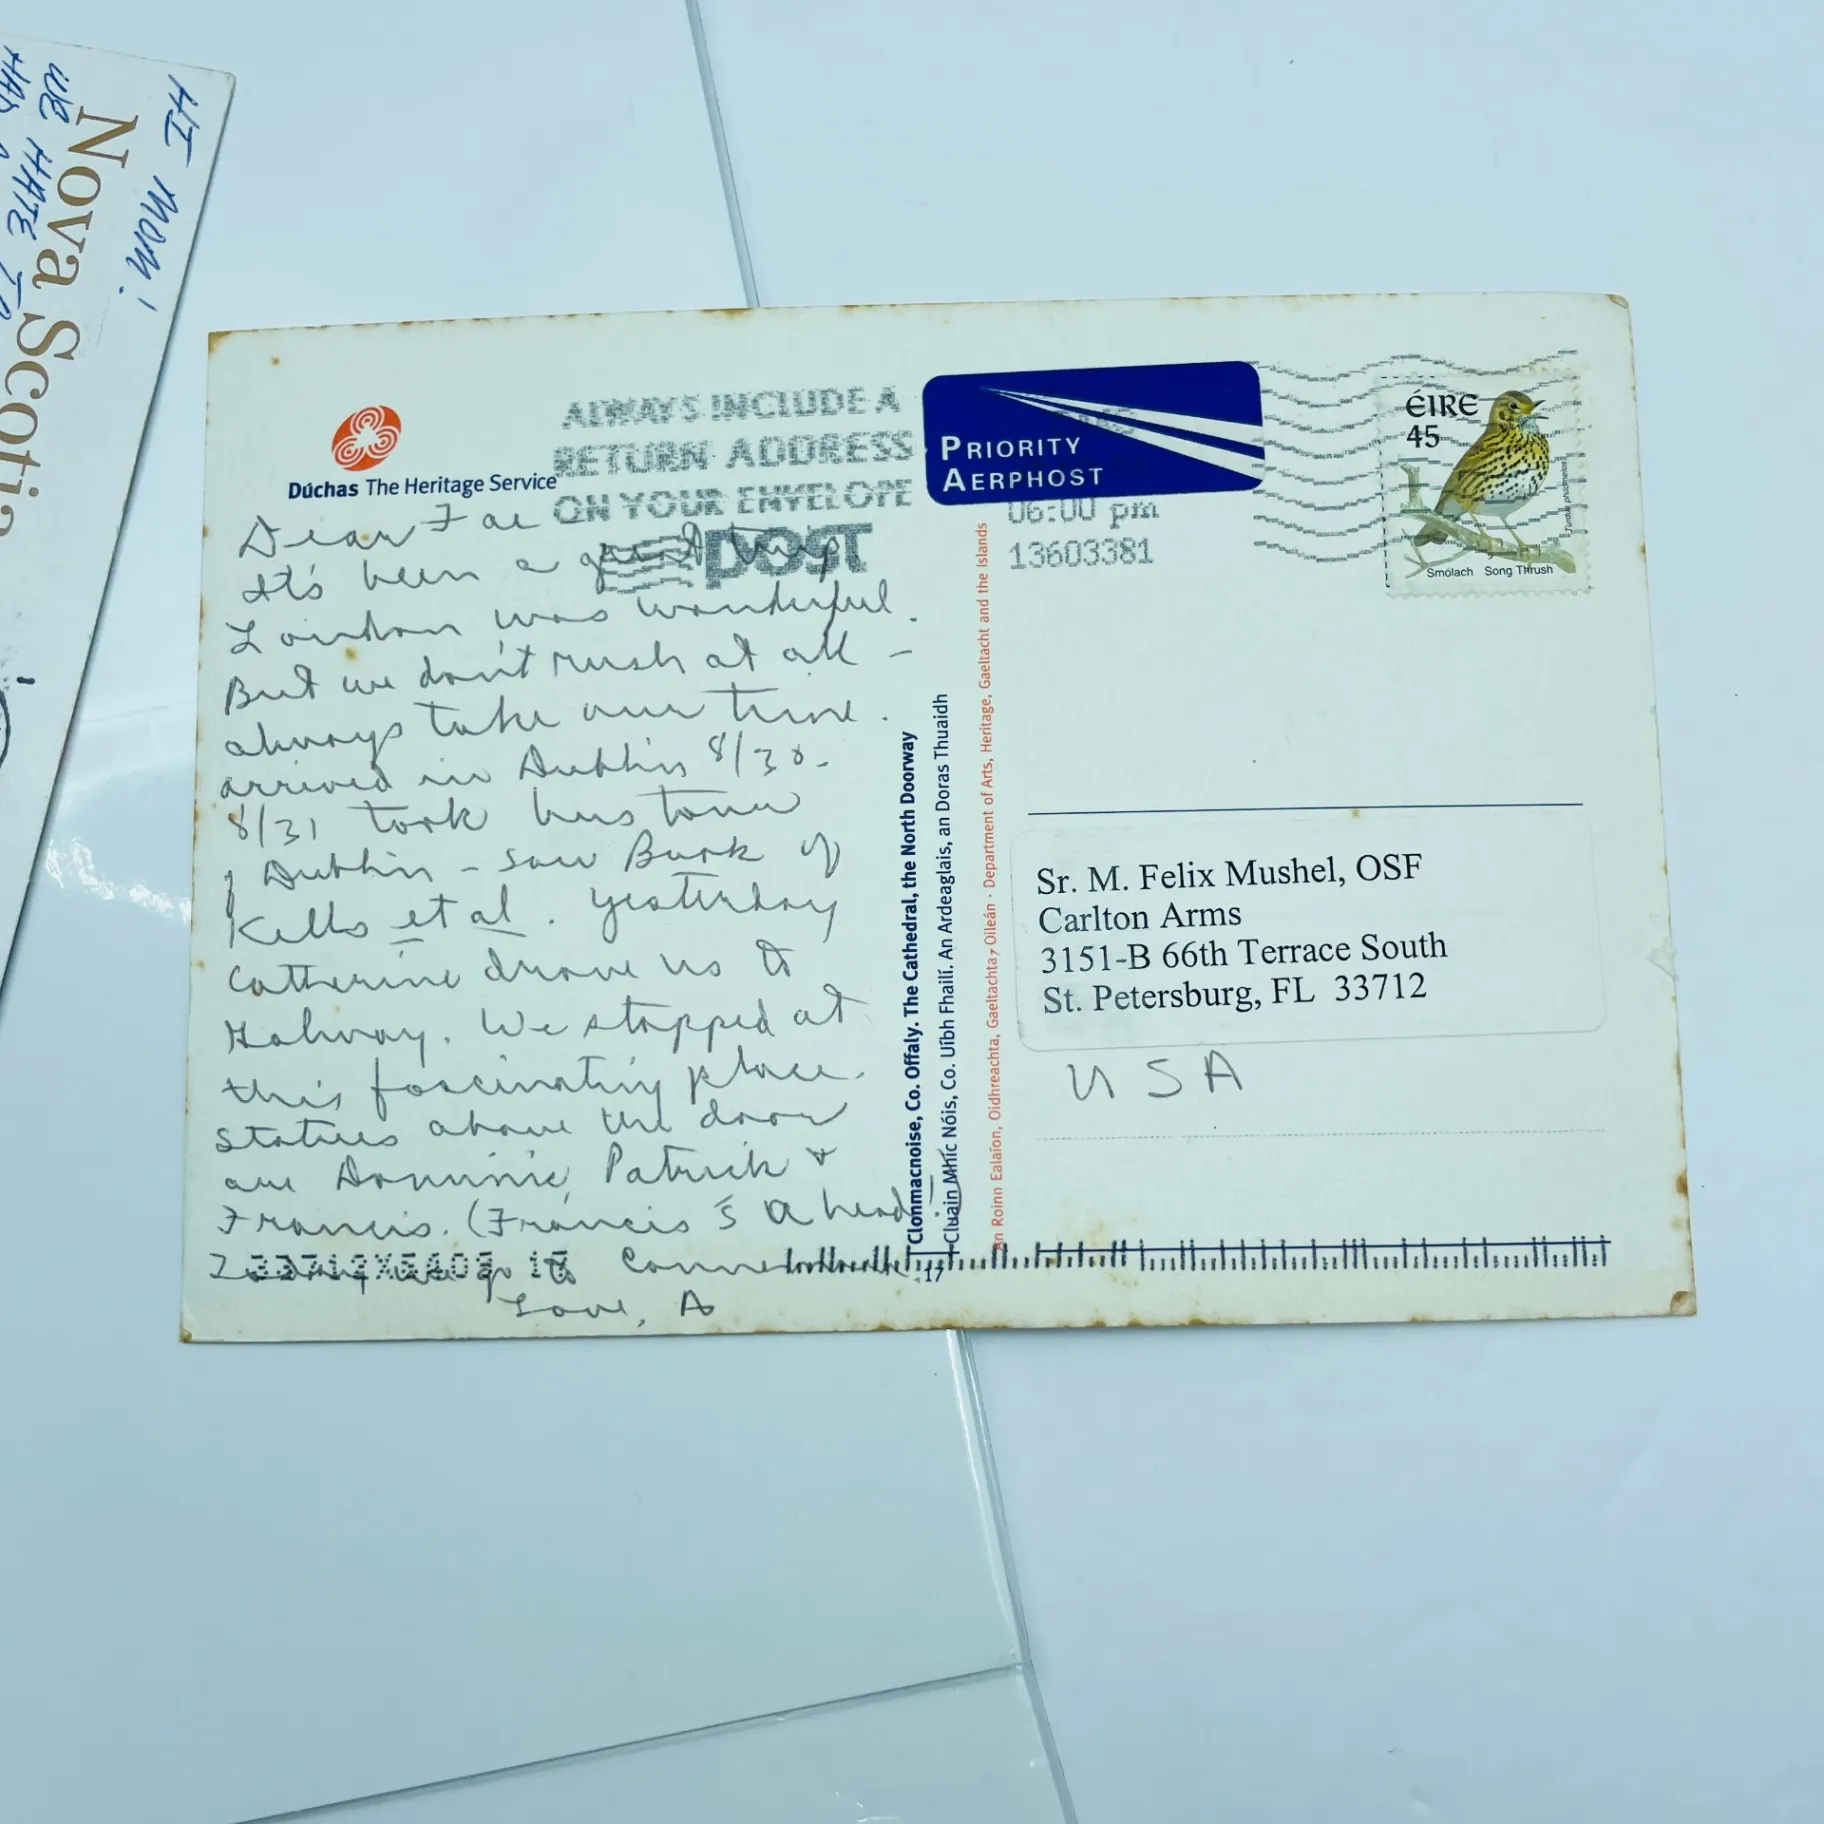 HI MUM!
Nova Scotia
WE HATE TO
HAD
Dúchas The Heritage Service
ALWAYS INCLUDE A
RETURN ADDRESS
ON YOUR ENVELOPE
post
PRIORITY
AERPHOST
06:00 pm
13603381
ÉIRE
45
Smólach Song Thrush
Turdus philomelos
Dear Fae
It's been a great trip
London was wonderful.
But we don't rush at all –
always take our time.
arrived in Dublin 8/30.
8/31 took bus tour
of Dublin – saw Book of
Kells et al. Yesterday
Catherine drove us to
Galway. We stopped at
this fascinating place.
Statues above the door
are Dominic, Patrick +
Francis. (Francis is a head!)
we go to
Love, A
Clonmacnoise, Co. Offaly. The Cathedral, the North Doorway
Cluain Mhic Nóis, Co. Uíbh Fhailí. An Ardeaglais, an Doras Thuaidh
An Roinn Ealaíon, Oidhreachta, Gaeltachta, Oileán · Department of Arts, Heritage, Gaeltacht and the Islands
17
Sr. M. Felix Mushel, OSF
Carlton Arms
3151-B 66th Terrace South
St. Petersburg, FL 33712
USA